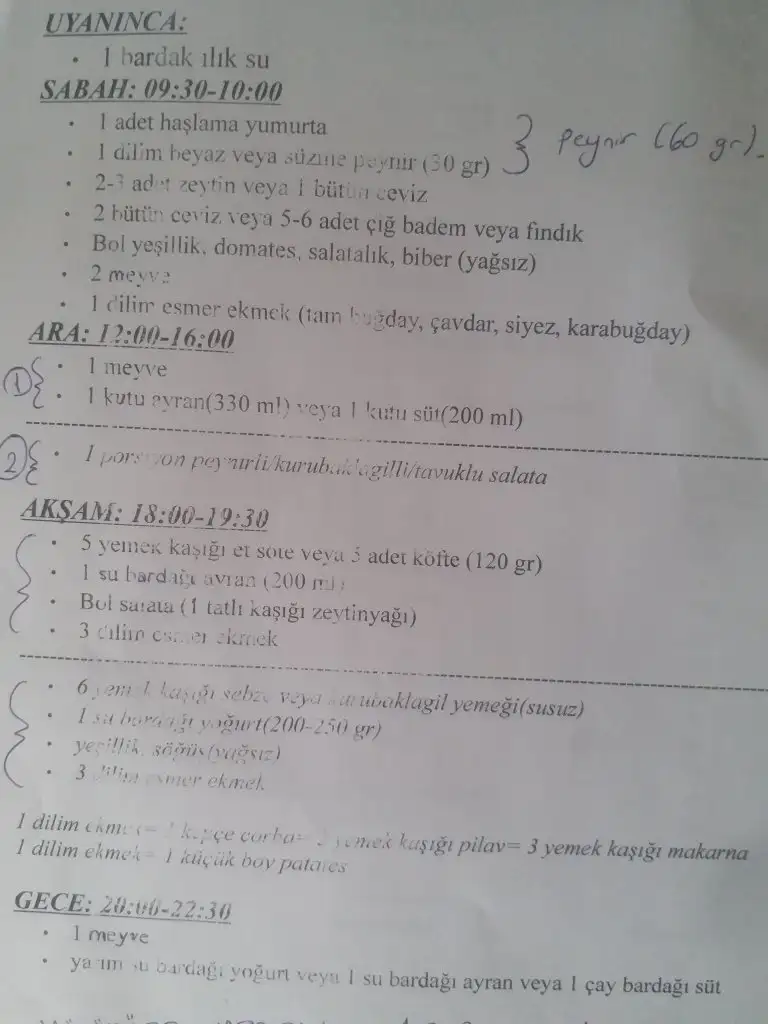 UYANINCA:
• 1 bardak ılık su
SABAH: 09:30-10:00
• 1 adet haşlama yumurta
• 1 dilim beyaz veya süzme peynir (30 gr) } peynir (60 gr).
• 2-3 adet zeytin veya 1 bütün ceviz
• 2 bütün ceviz veya 5-6 adet çiğ badem veya fındık
• Bol yeşillik, domates, salatalık, biber (yağsız)
• 2 meyve
• 1 dilim esmer ekmek (tam buğday, çavdar, siyez, karabuğday)
ARA: 12:00-16:00
① { • 1 meyve
• 1 kutu ayran(330 ml) veya 1 kutu süt(200 ml)
② { • 1 porsiyon peynirli/kurubaklagilli/tavuklu salata
AKŞAM: 18:00-19:30
• 5 yemek kaşığı et sote veya adet köfte (120 gr)
• 1 su bardağı ayran (200 ml)
• Bol salata (1 tatlı kaşığı zeytinyağı)
• 3 dilim esmer ekmek
• 6 yemek kaşığı sebze veya kurubaklagil yemeği(susuz)
• 1 su bardağı yoğurt(200-250 gr)
• yeşillik, söğüş(yağsız)
• 3 dilim esmer ekmek
1 dilim ekmek= kepçe çorba= yemek kaşığı pilav= 3 yemek kaşığı makarna
1 dilim ekmek= 1 küçük boy patates
GECE: 20:00-22:30
• 1 meyve
• yarım su bardağı yoğurt veya 1 su bardağı ayran veya 1 çay bardağı süt